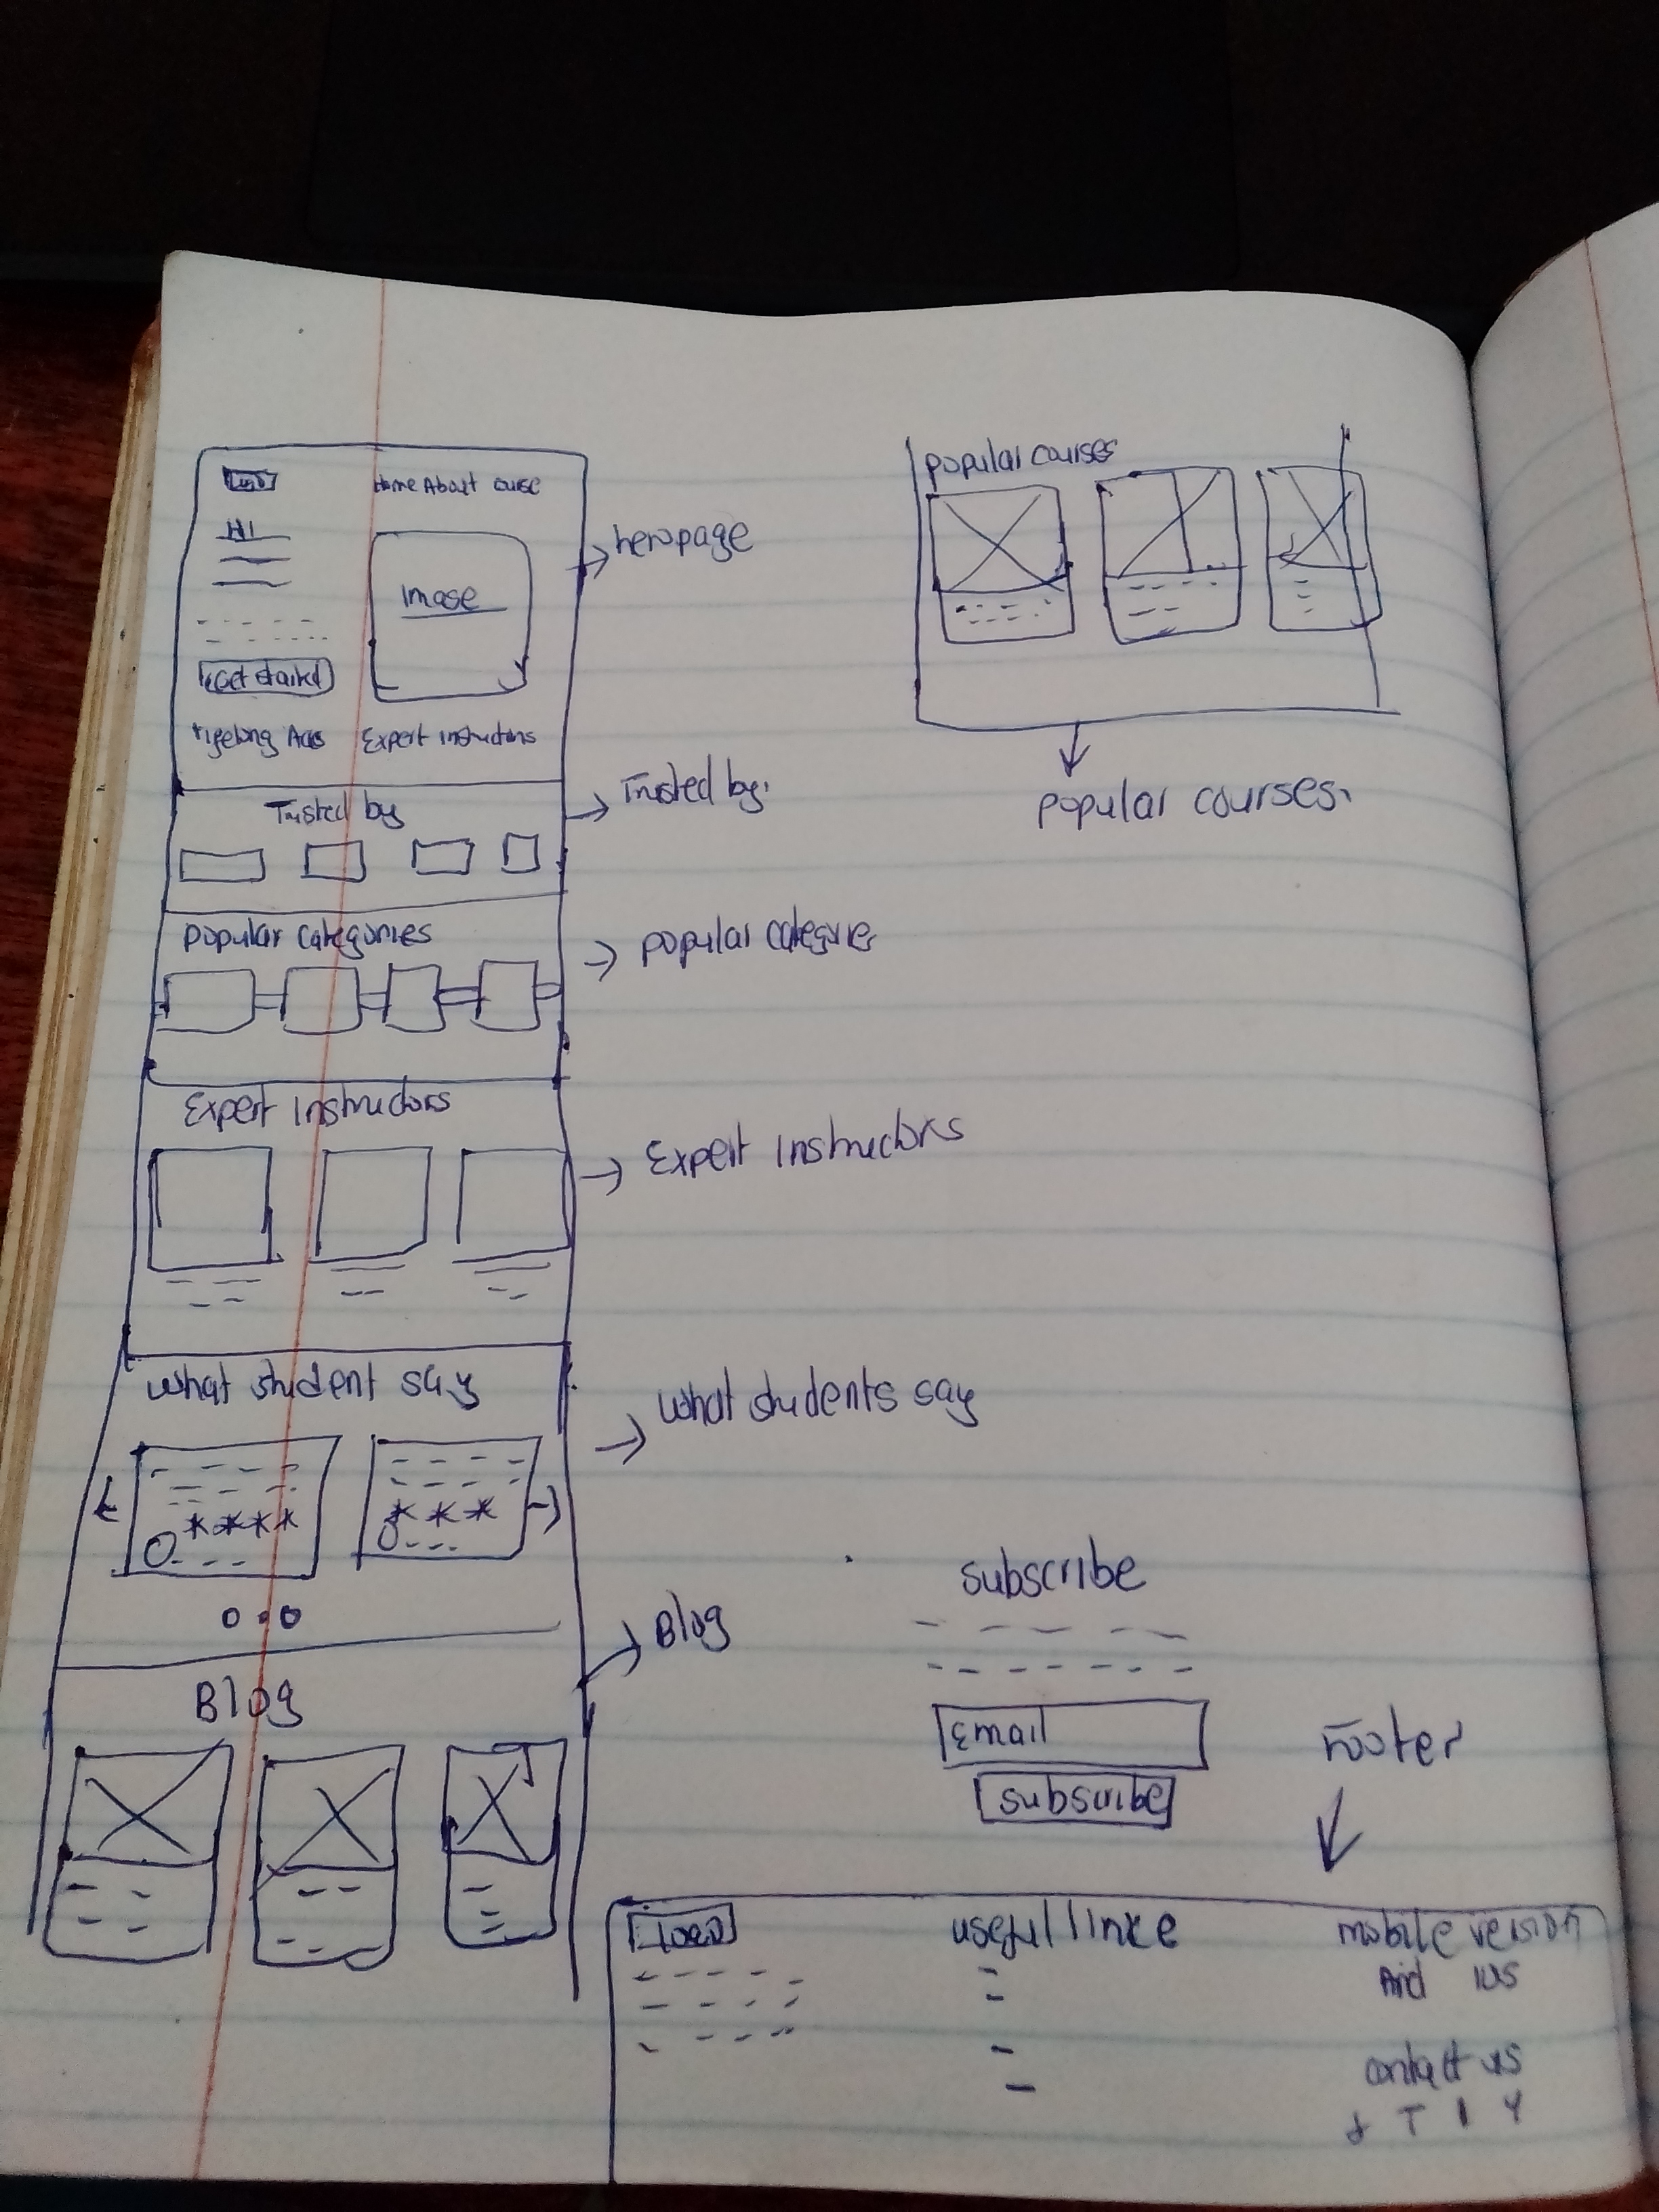 Logo
Home About course
H1
Image
Get started
Expert Instructors
heropage
Trusted by
Trusted by.
Popular Categories
popular categorie
Expert Instructors
Expert Instructors
What student say
What students say
Blog
Blog
popular courses
popular courses.
subscribe
Email
subscribe
Footer
Logo
useful linke
mobile version
And IOS
contact us
f T I Y